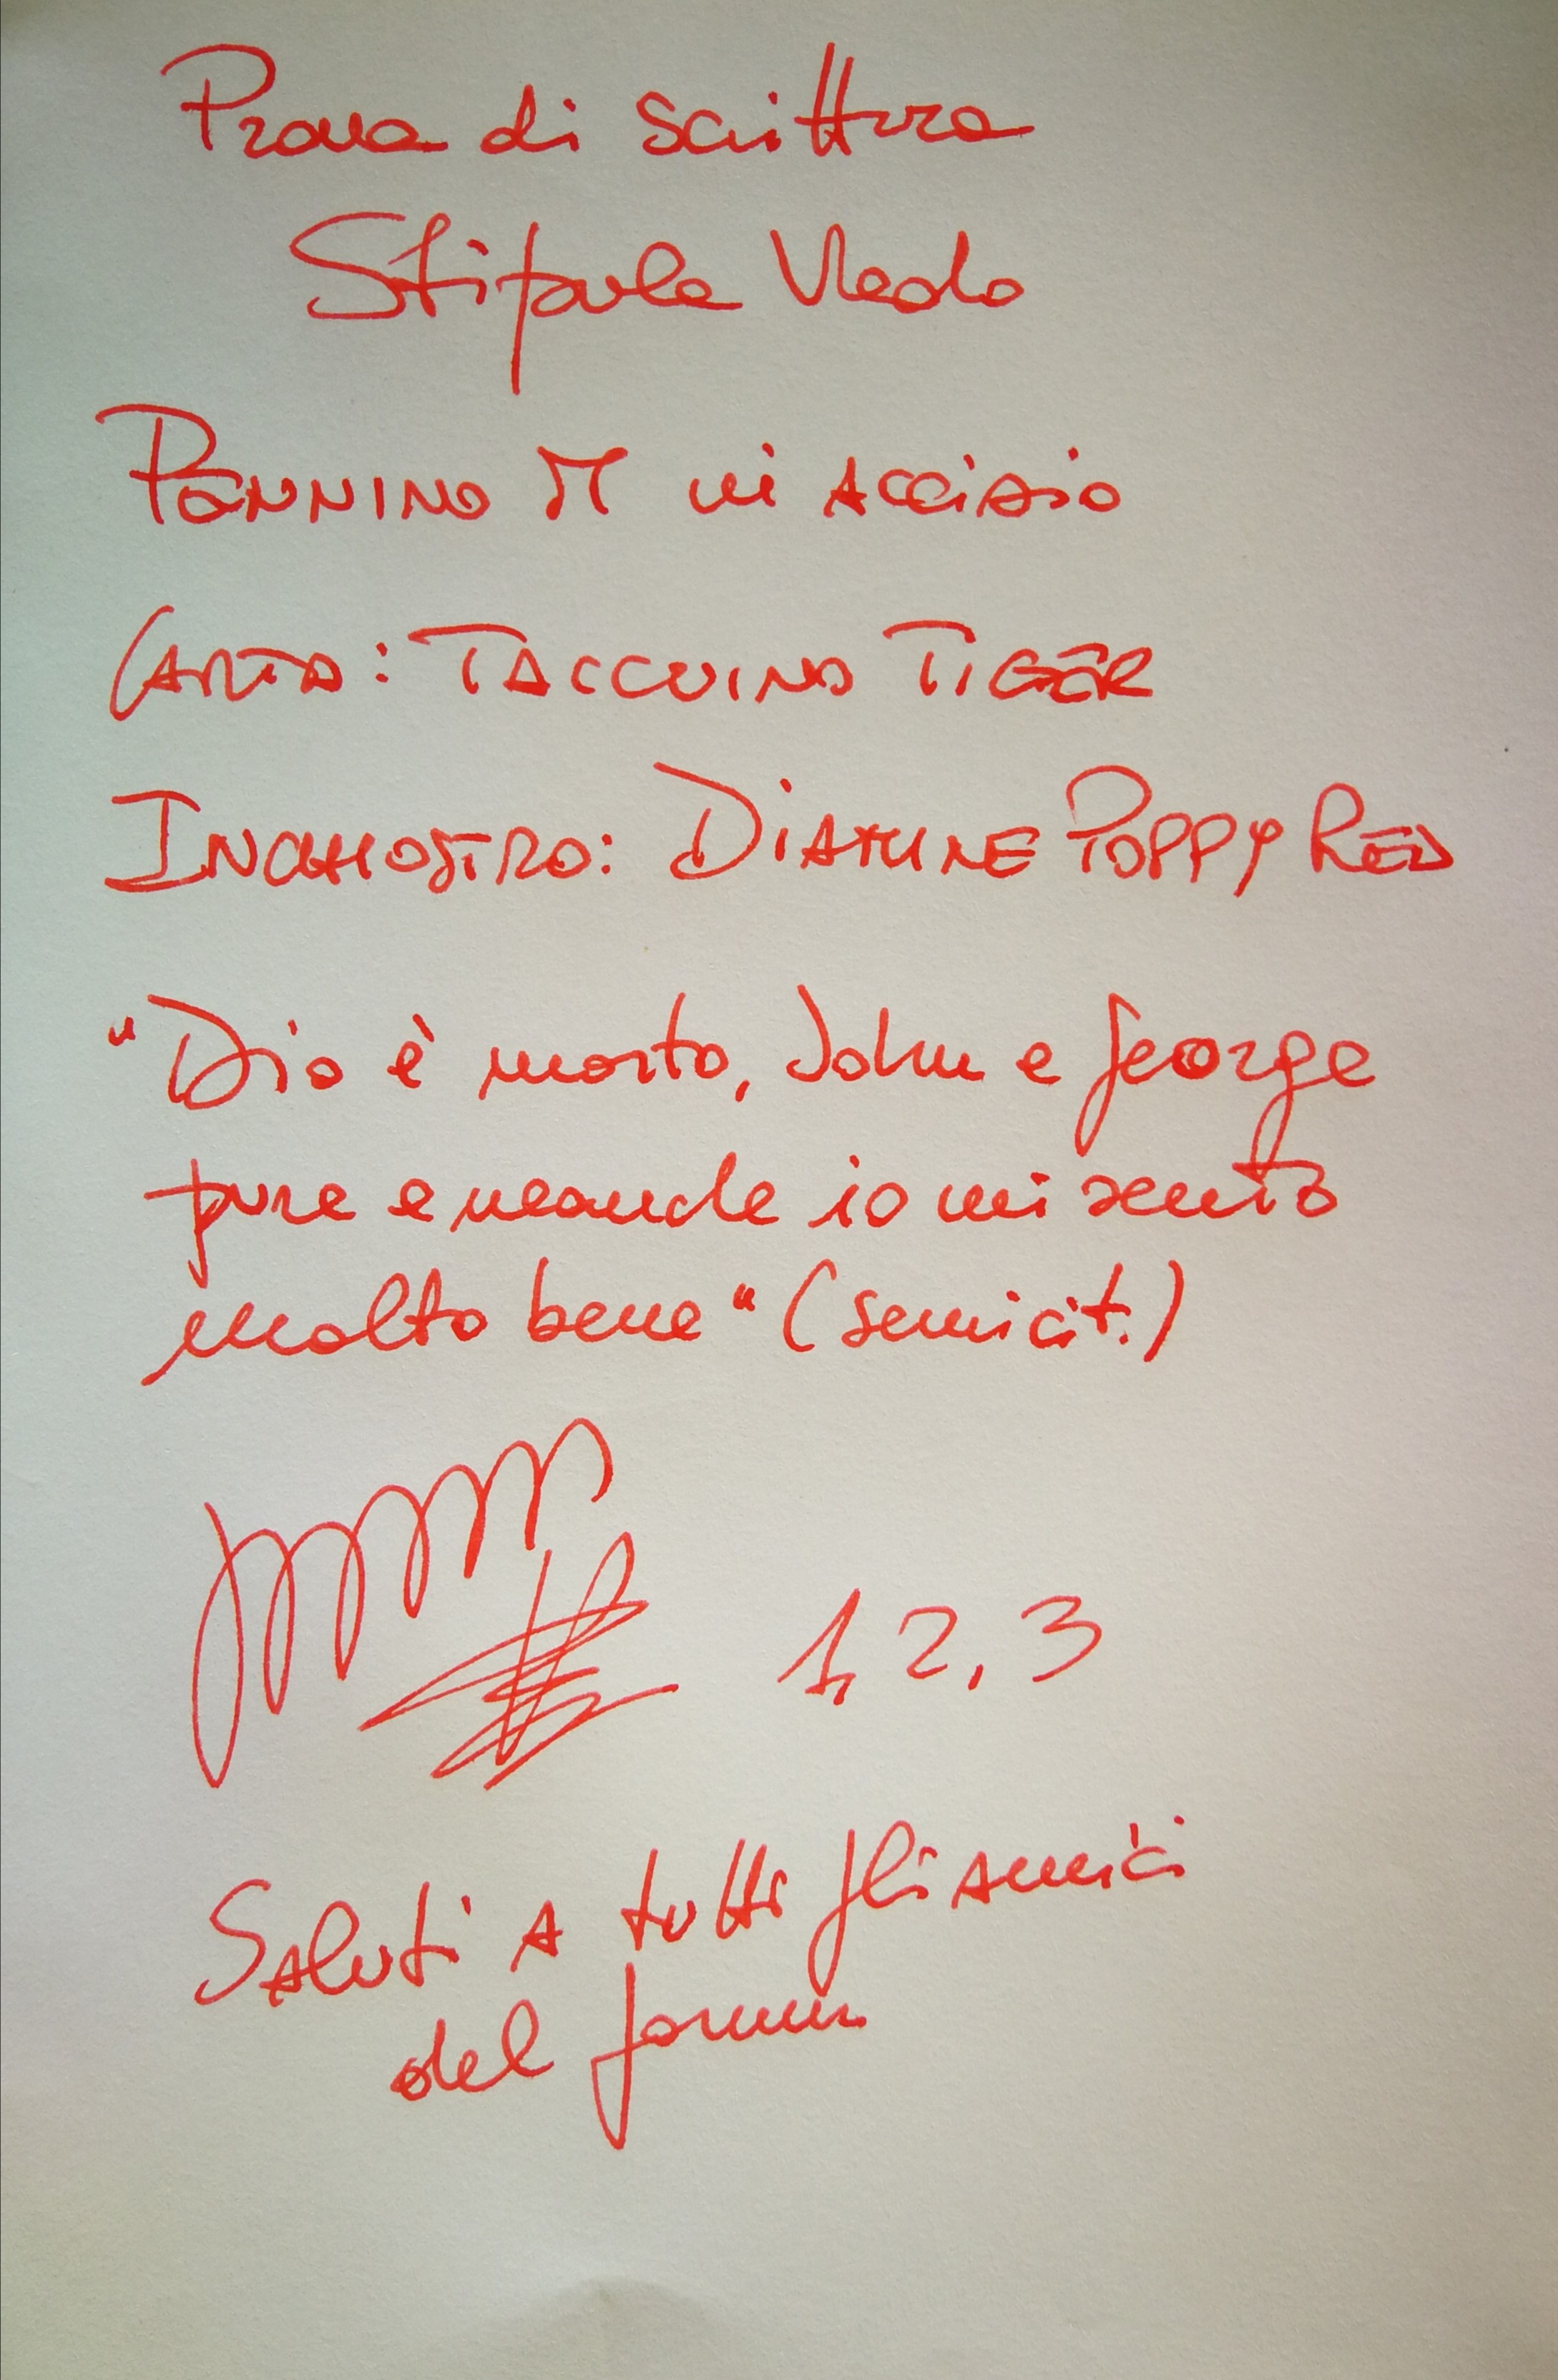 Prova di scrittura
Stipula Vedo
PENNINO M in ACCiAio
CARTA: TACCUINO TIGER
INCHIOSTRO: DIAMINE POPPY RED
"Dio è morto, John e George
pure e neanche io mi sento
molto bene" (semicit.)
1, 2, 3
Saluti A tutti gli Amici
del forum